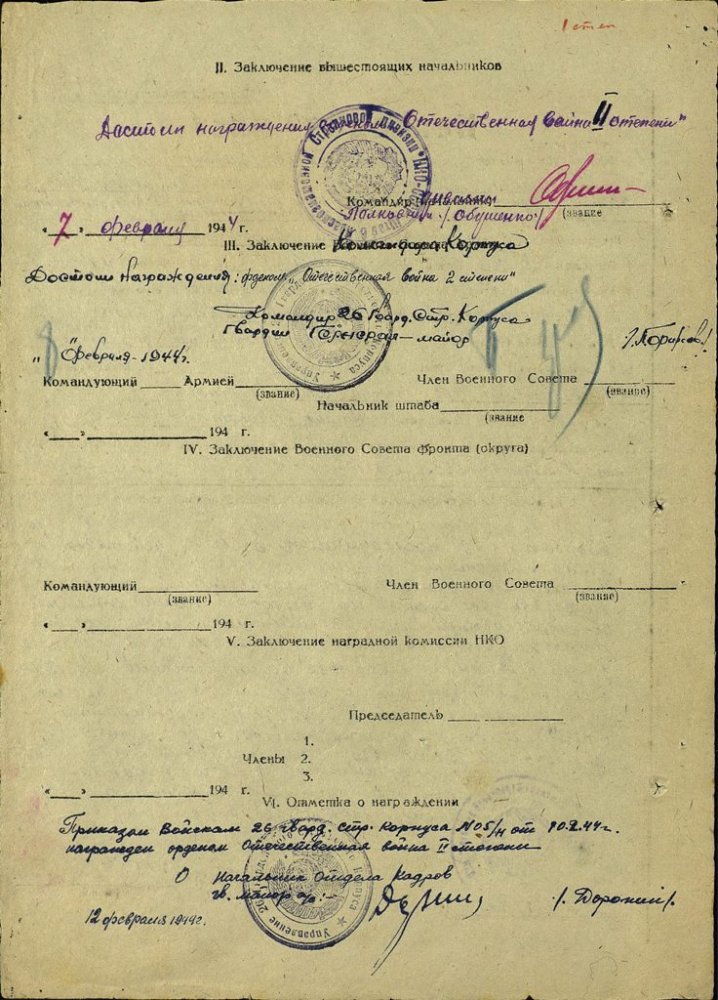 1 степ
II. Заключение вышестоящих начальников
Достоин награждения Отечественная война II степени"
Командир
Полковник /Обушенко/ (звание
"7" февраля 1944 г.
III. Заключение Командира Корпуса
Достоин награждения: орденом "Отечественная война 2 степени"
Командир 26 Гвард. Стр. Корпуса
Гвардии Генерал-майор
"8" Февраля-1944г.
Командующий ____ Армией ____ Член Военного Совета ____
(звание) (звание)
Начальник штаба ____
(звание
"__" ____ 194 г.
IV. Заключение Военного Совета фронта (округа)
Командующий ____ Член Военного Совета ____
(звание) (звание)
"__" ____ 194 г.
V. Заключение наградной комиссии НКО
Председатель ____
1.
Члены 2.
3.
"__" ____ 194 г.
VI. Отметка о награждении
Приказом Войскам 26 Гвард. Стр. Корпуса №05/н от 10.2.44г.
награжден орденом Отечественная война II степени
Начальник Отдела Кадров
гв. майор
/. Доронин/.
12 февраля 1944г.